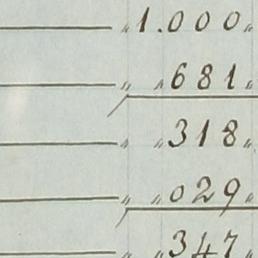 „ 1.000 „
„ „ 681 „
„ „ 318 „
„ „ 029 „
„ „ 347 „